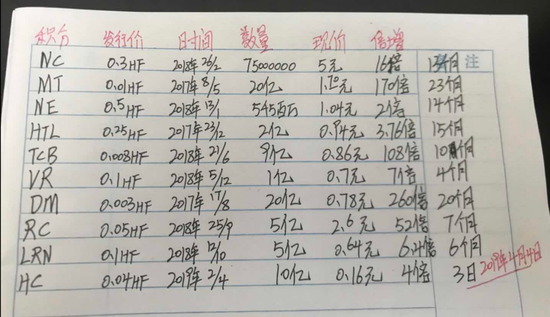 积分 发行价 日时间 数量 现价 倍增 备注
NC 0.3HF 2018年26/2 75000000 5元 16倍 13个月
MT 0.01HF 2017年8/5 20亿 1.70元 170倍 23个月
NE 0.5HF 2018年13/1 545百万 1.04元 2倍 14个月
HTL 0.25HF 2017年23/12 2亿 0.94元 3.76倍 15个月
TCB 0.008HF 2018年21/6 9亿 0.86元 108倍 10个月
VR 0.1HF 2018年5/12 1亿 0.7元 7倍 4个月
DM 0.003HF 2017年17/8 20亿 0.78元 260倍 20个月
RC 0.05HF 2018年25/9 5亿 2.6元 52倍 7个月
LRN 0.1HF 2018年12/10 5亿 0.64元 6.4倍 6个月
HC 0.04HF 2019年2/4 10亿 0.16元 4倍 3日
2019年4月4日